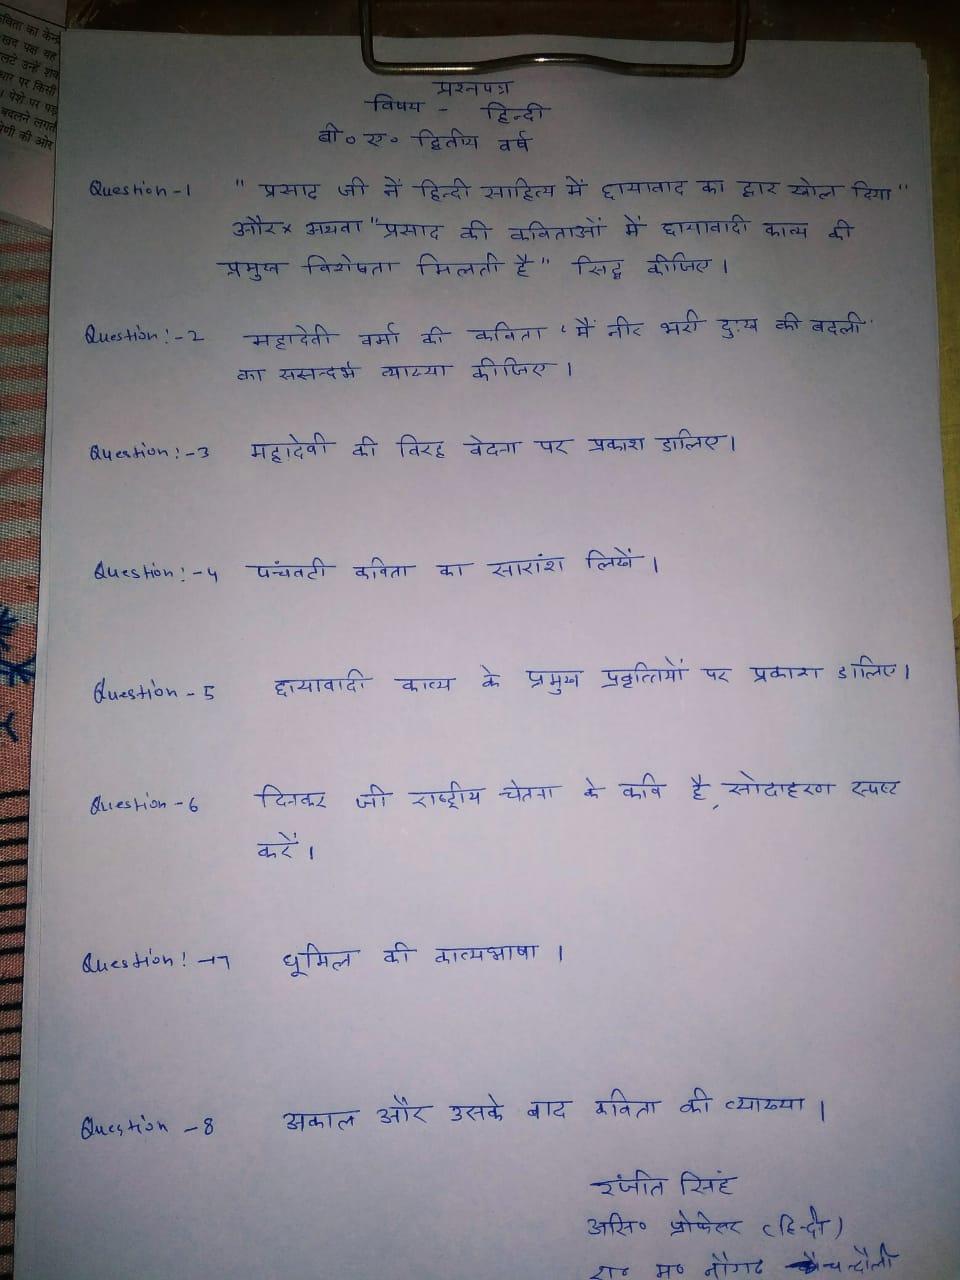 कविता का केन्द्र
खद पक्ष वह
लटे उन्हें शव
धार पर किसी
। पेशे पर पड़
बदलने लगत
श्रेणी की ओर
प्रश्नपत्र
विषय - हिन्दी
बी० ए० द्वितीय वर्ष
Question-1 " प्रसाद जी नें हिन्दी साहित्य में छायावाद का द्वार खोल दिया"
और× अथवा "प्रसाद की कविताओं में छायावादी काव्य की
प्रमुख विशेषता मिलती है" सिद्ध कीजिए।
Question:-2 महादेवी वर्मा की कविता 'मैं नीर भरी दुःख की बदली'
का ससन्दर्भ व्याख्या कीजिए।
Question:-3 महादेवी की विरह वेदना पर प्रकाश डालिए।
Question:-4 पंचवटी कविता का सारांश लिखें।
Question-5 छायावादी काव्य के प्रमुख प्रवृत्तियों पर प्रकाश डालिए।
Question-6 दिनकर जी राष्ट्रीय चेतना के कवि है, सोदाहरण स्पष्ट
करें।
Question:-7 धूमिल की काव्यभाषा।
Question-8 अकाल और उसके बाद कविता की व्याख्या।
रंजीत सिंह
असि० प्रोफेसर (हिन्दी)
रा० म० नौगढ़ चन्दौली